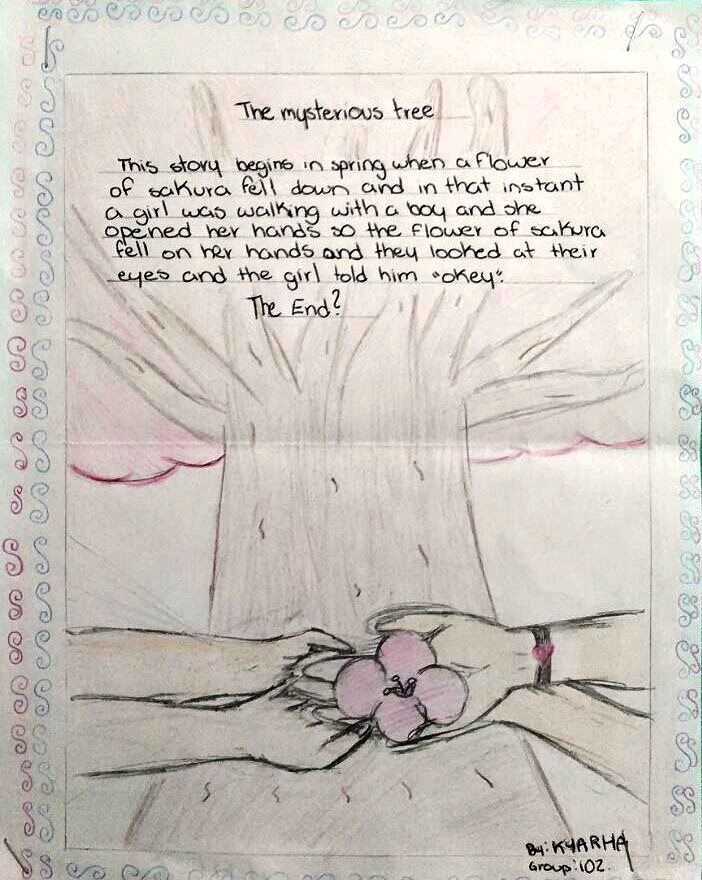 The mysterious tree
This story begins in spring when a flower
of sakura fell down and in that instant
a girl was walking with a boy and she
opened her hands so the flower of sakura
fell on her hands and they looked at their
eyes and the girl told him "okey".
The End?
By: KYARHA
Group: 102.